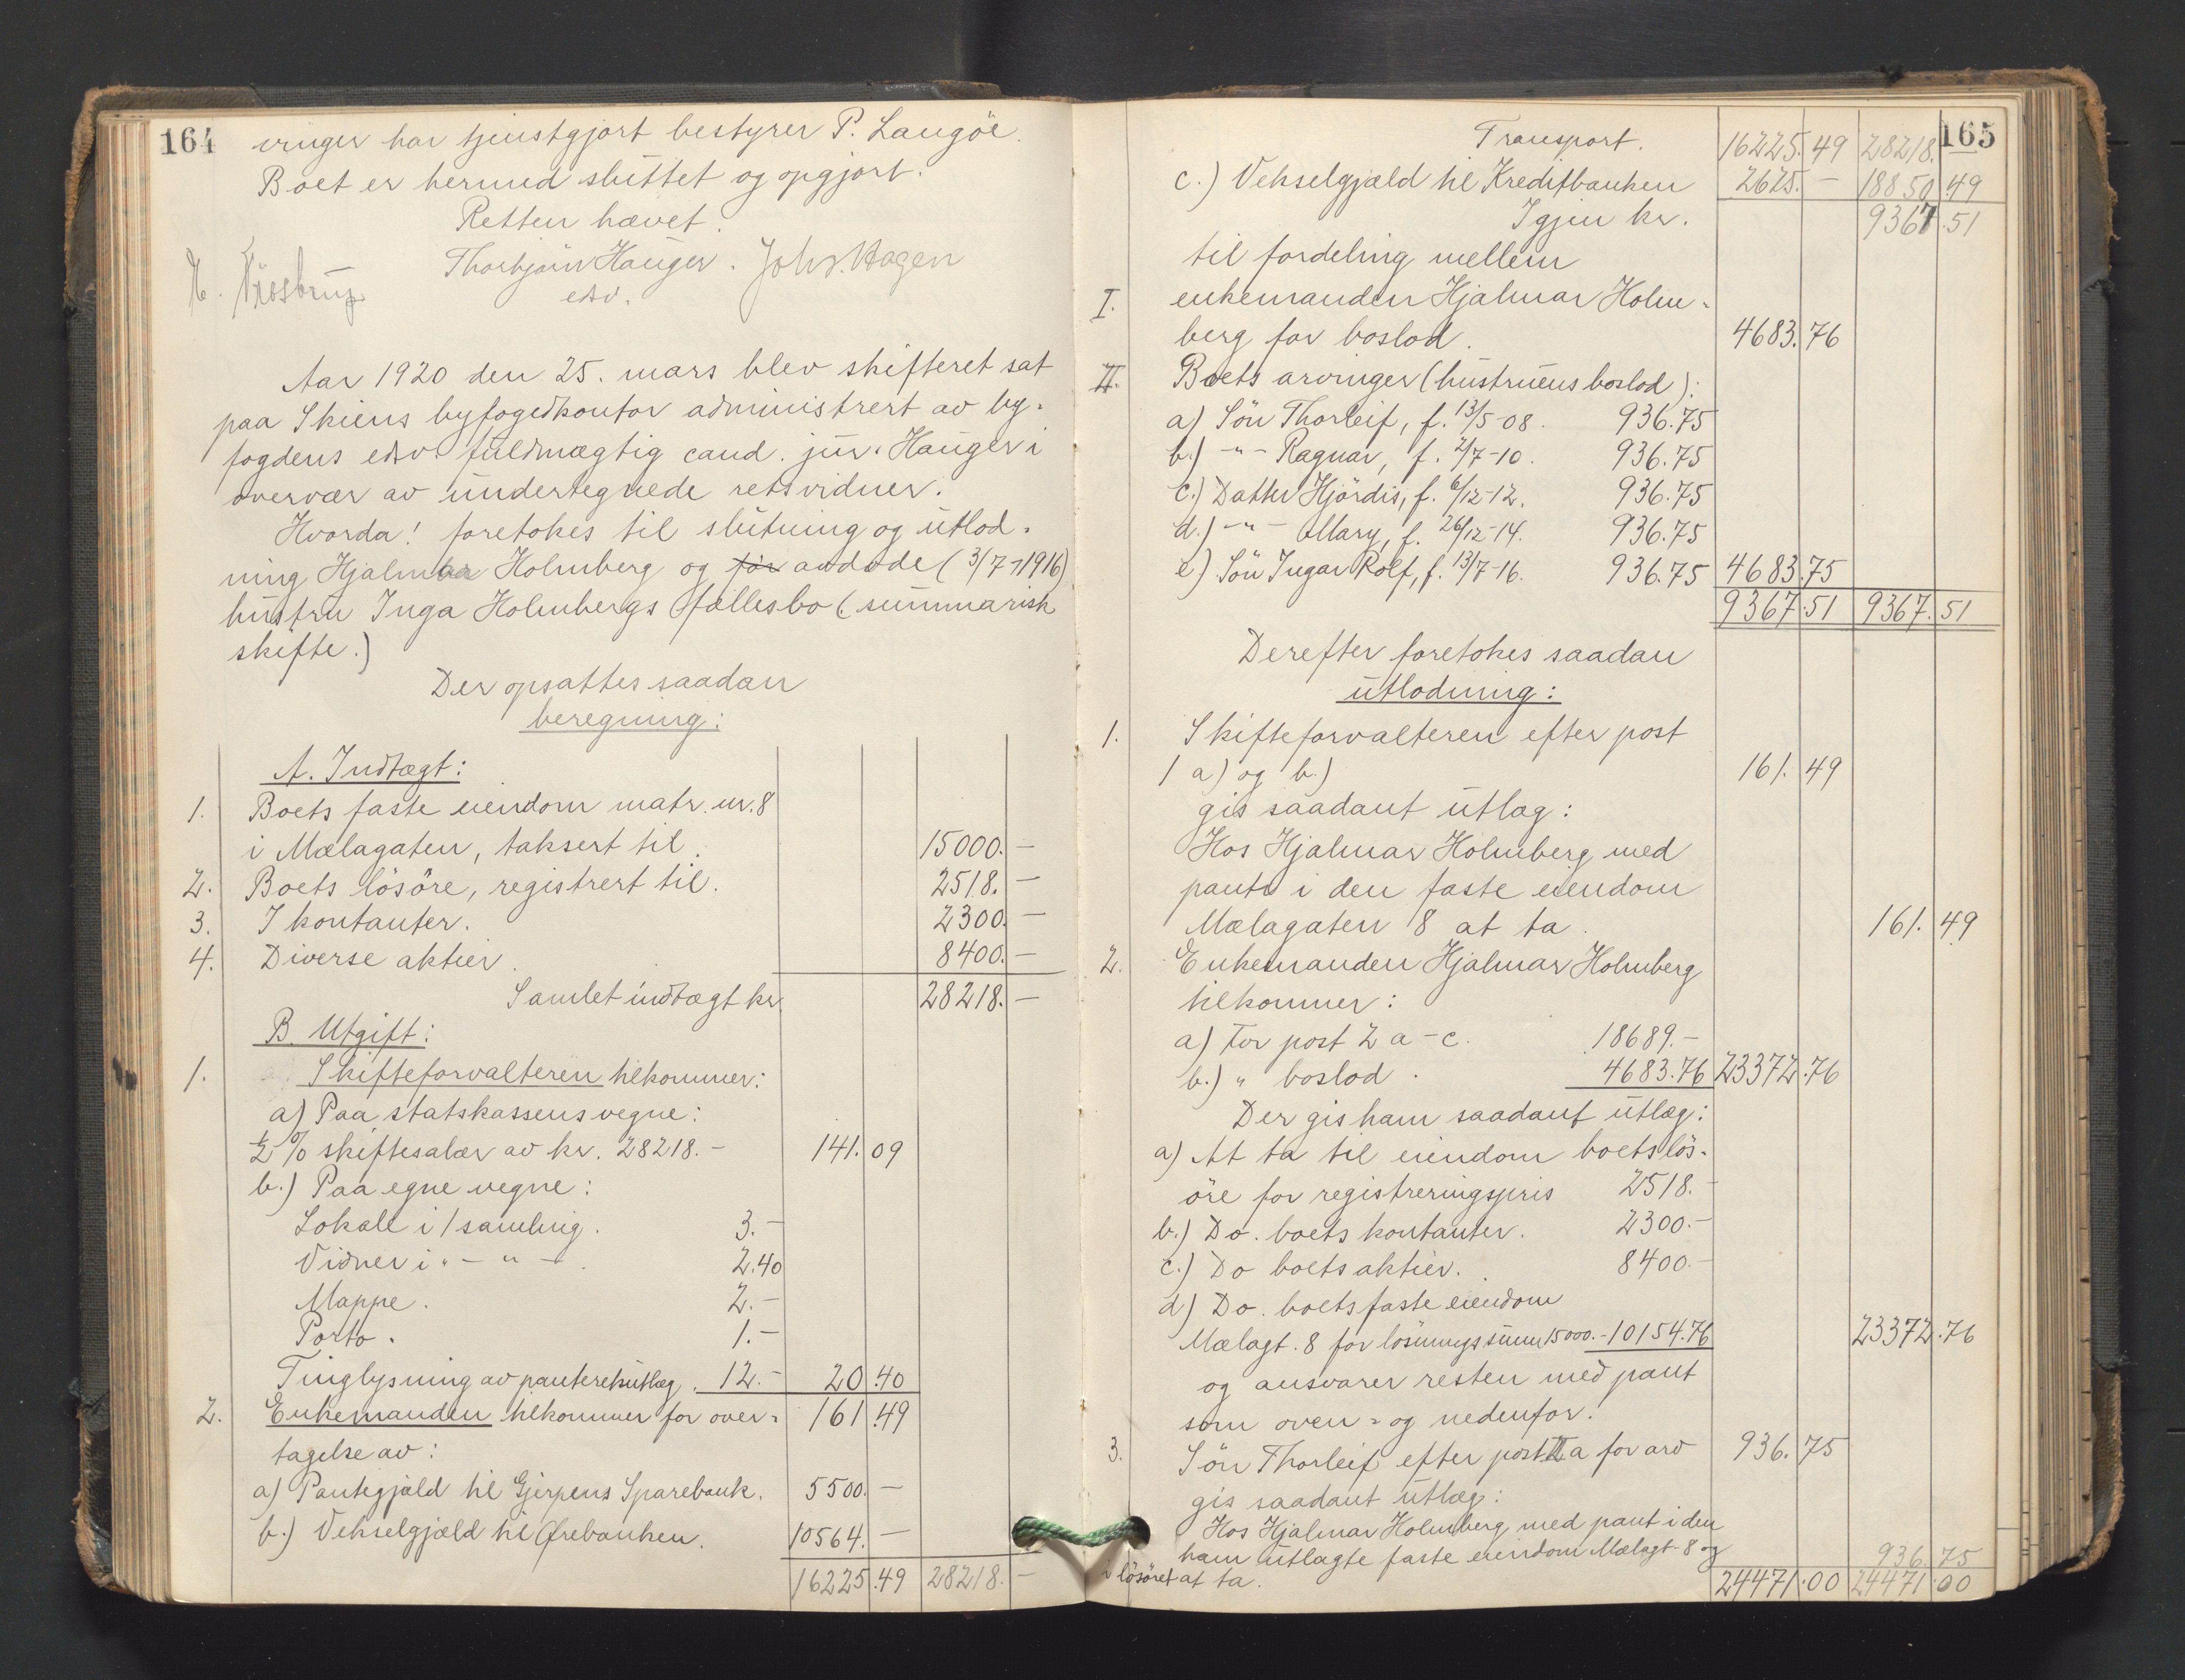 164
vinger har tjenstgjort bestyrer P. Langöe.
Boet er hermed sluttet og opgjort.
Retten hævet.
Thorbjörn Hauger. Johs. Hagen
edsv.
Aar 1920 den 25. mars blev skifteret sat
paa Skiens byfogedkontor administrert av by-
fogdens edsv. fuldmægtig cand. jur. Hauger i
overvær av undertegnede retsvidner.
Hvorda! foretokes til slutning og utlod-
ning Hjalmar Holmberg og før avdøde (3/7-1916)
hustru Inga Holmbergs fællesbo (summarisk
skifte.)
Der opsattes saadan
beregning:
A. Indtægt:
1. Boets faste eiendom matr. nr. 8
i Mælagaten, taksert til 15000. —
2. Boets lösöre, registrert til. 2518. —
3. I kontanter. 2300. —
4. Diverse aktier. 8400. —
Samlet indtægt kr. 28218. —
B. Utgift:
1. Skifteforvalteren tilkommer:
a) Paa statskassens vegne:
½ % skiftesalær av kr. 28218.- 141. 09
b.) Paa egne vegne:
Lokale i 1 samling. 3.-
Vidner i " - " - 2.40
Mappe. 2.-
Porto. 1.-
Tinglysning av panteretsutlæg. 12.- 20.40
2. Enkemanden tilkommer for over- 161.49
tagelse av:
a) Pantegjæld til Gjerpens Sparebank. 5500. —
b.) Vekselgjæld til Ørebanken. 10564. —
16225.49 28218. —
165
Transport. 16225.49 28218.
c.) Vekselgjæld til Kreditbanken 2625. — 18850 49
Igjen kr. 9367.51
til fordeling mellem
I. enkemanden Hjalmar Holm-
berg for boslod. 4683.76
II. Boets arvinger (hustruens boslod):
a) Sön Thorleif, f. 13/5-08. 936.75
b.) -"- Ragnar, f. 2/7-10. 936.75
c.) Datter Hjördis, f. 6/12-12. 936.75
d.) -"- Mary, f. 26/12-14. 936.75
e) Sön Ingar Rolf, f. 13/7-16. 936.75 4683.75
9367.51 9367.51
Derefter foretokes saadan
utlodning:
1. Skifteforvalteren efter post
1 a) og b.) 161.49
gis saadant utlæg:
Hos Hjalmar Holmberg med
pant i den faste eiendom
Mælagaten 8 at ta. 161.49
2. Enkemanden Hjalmar Holmberg
tilkommer:
a) For post 2 a-c. 18689.-
b.) " boslod. 4683.76 23372.76
Der gis ham saadant utlæg:
a) At ta til eiendom boets lös-
öre for registreringspris 2518.-
b.) Do. boets kontanter. 2300.-
c.) Do boets aktier. 8400.-
d) Do. boets faste eiendom
Mælagt. 8 for lösningssum 15000.- 10154.76 23372.76
og ansvarer resten med pant
som oven- og nedenfor.
3. Sön Thorleif efter post II a for arv 936.75
gis saadant utlæg:
Hos Hjalmar Holmberg med pant i den
ham utlagte faste eiendom Mælagt. 8 og 936.75
i lösöret at ta. 24471.00 24471.00